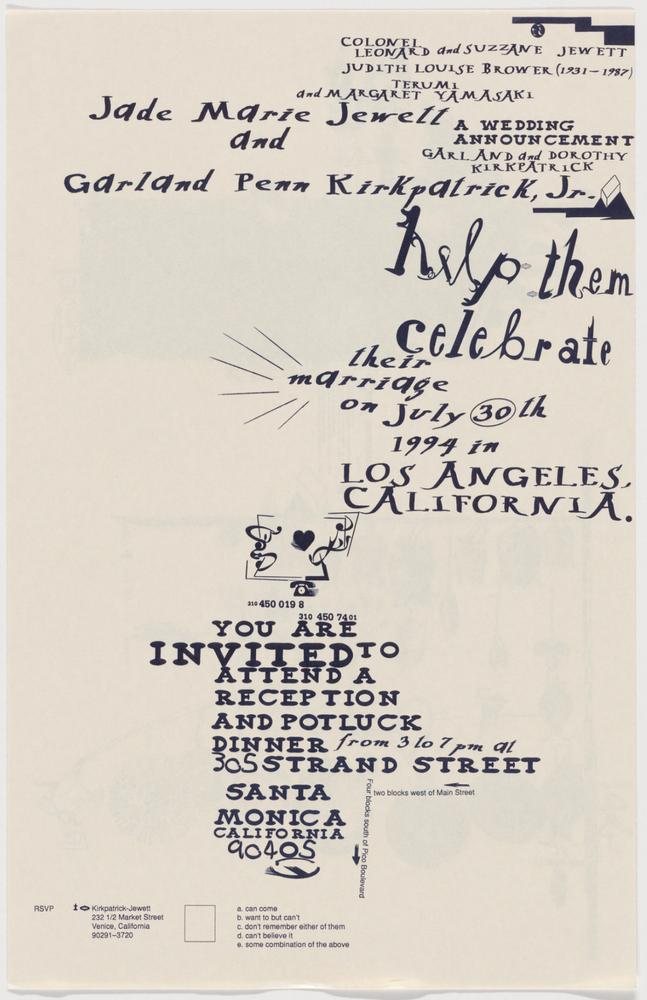 COLONEL
LEONARD and SUZZANE JEWETT
JUDITH LOUISE BROWER (1931-1987)
TERUMI
and MARGARET YAMASAKI
Jade Marie Jewett
and
A WEDDING
ANNOUNCEMENT
GARLAND and DOROTHY
KIRKPATRICK
Garland Penn Kirkpatrick, Jr.
help them
celebrate
their
marriage
on july 30th
1994 in
LOS ANGELES,
CALIFORNIA.
310 450 019 8
310 450 7401
YOU ARE
INVITED TO
ATTEND A
RECEPTION
AND POTLUCK
DINNER from 3 to 7 pm at
305 STRAND STREET
two blocks west of Main Street
Four blocks south of Pico Boulevard
SANTA
MONICA
CALIFORNIA
90405
RSVP
Kirkpatrick-Jewett
232 1/2 Market Street
Venice, California
90291-3720
a. can come
b. want to but can't
c. don't remember either of them
d. can't believe it
e. some combination of the above